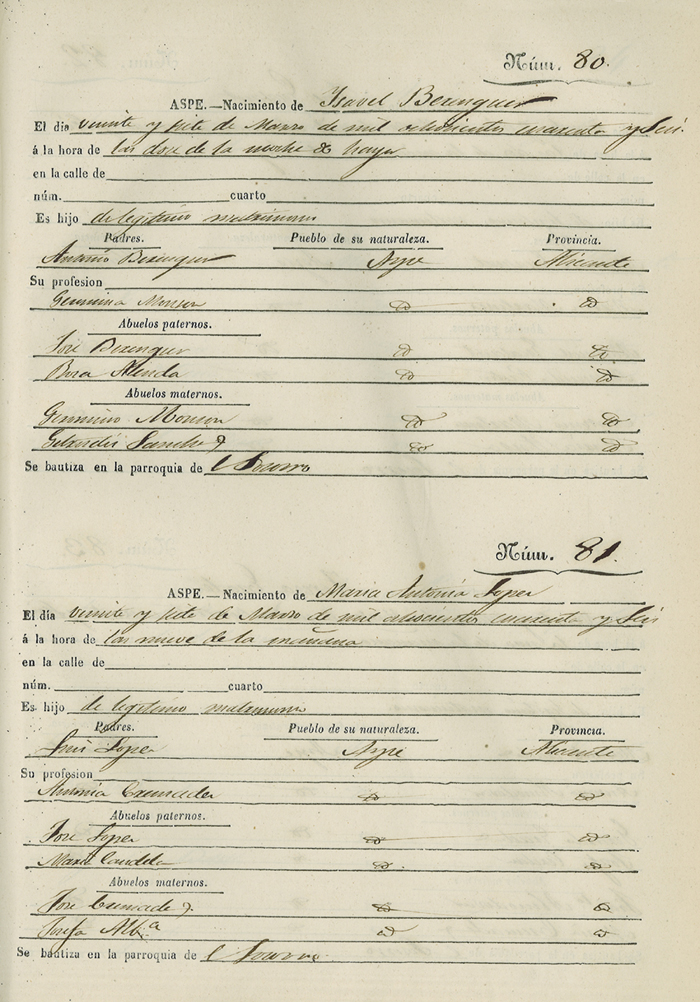 Núm. 80.
ASPE.—Nacimiento de Ysavel Berenguer
El día veinte y siete de Marzo de mil ochocientos cuarenta y Seis
á la hora de las dose de la noche de
en la calle de
núm. cuarto
Es hijo de legitimo matrimonio
Padres. Pueblo de su naturaleza. Provincia.
Antonio Berenguer Azpe Alicante
Su profesion
id id
Abuelos paternos.
José Berenguer id id
Alenda id id
Abuelos maternos.
id id
id id
Se bautiza en la parroquia de l Socorro
Núm. 81.
ASPE.—Nacimiento de Maria Antonia Lopez
El día veinte y siete de Marzo de mil ochocientos cuarenta y Seis
á la hora de las nueve de la mañana
en la calle de
núm. cuarto
Es hijo de legitimo matrimonio
Padres. Pueblo de su naturaleza. Provincia.
Luis Lopez Azpe Alicante
Su profesion
Antonia id id
Abuelos paternos.
Jose Lopez id id
Maria Candela id id
Abuelos maternos.
Jose id id
Josefa id id
Se bautiza en la parroquia de l Socorro